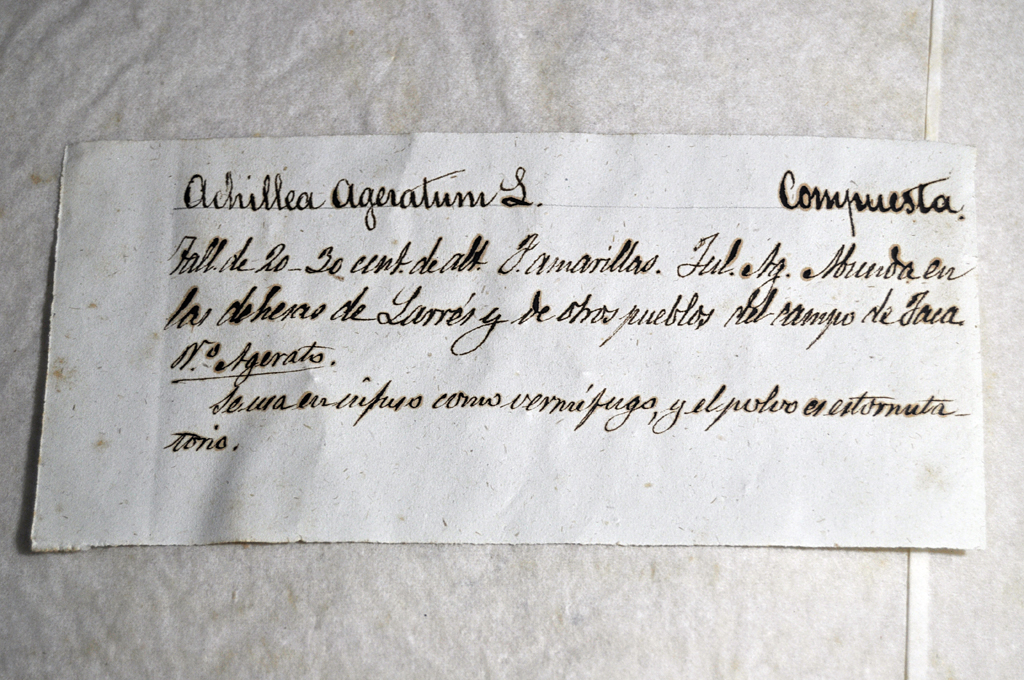 Achillea Ageratum L. Compuesta.
Tall. de 20-30 cent. de alt. F. amarillas. Jul. Ag. Abunda en
las dehesas de Larrés y de otros pueblos del campo de Jaca.
N.º Agerato.
Se usa en infuso como vermífugo, y el polvo es estornuta-
torio.